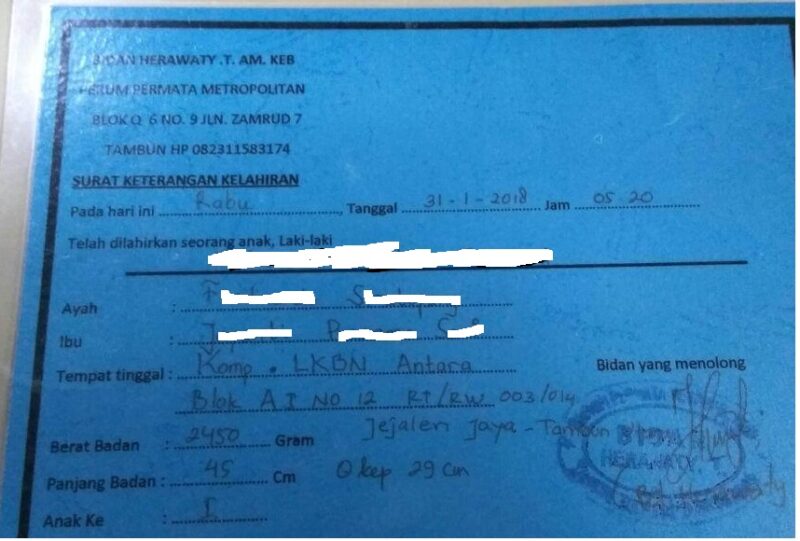 BIDAN HERAWATY .T. AM. KEB
PERUM PERMATA METROPOLITAN
BLOK Q 6 NO. 9 JLN. ZAMRUD 7
TAMBUN HP 082311583174
SURAT KETERANGAN KELAHIRAN
Pada hari ini Rabu, Tanggal 31-1-2018 Jam 05 20
Telah dilahirkan seorang anak, Laki-laki
Ayah :
Ibu :
Tempat tinggal : Komp. LKBN Antara
Bidan yang menolong
Blok A I No 12 RT/RW 003/014
Jejalen Jaya - Tambun
Berat Badan : 2450 Gram
Panjang Badan : 45 Cm
29 cm
Anak Ke : I
BIDAN
HERAWATY